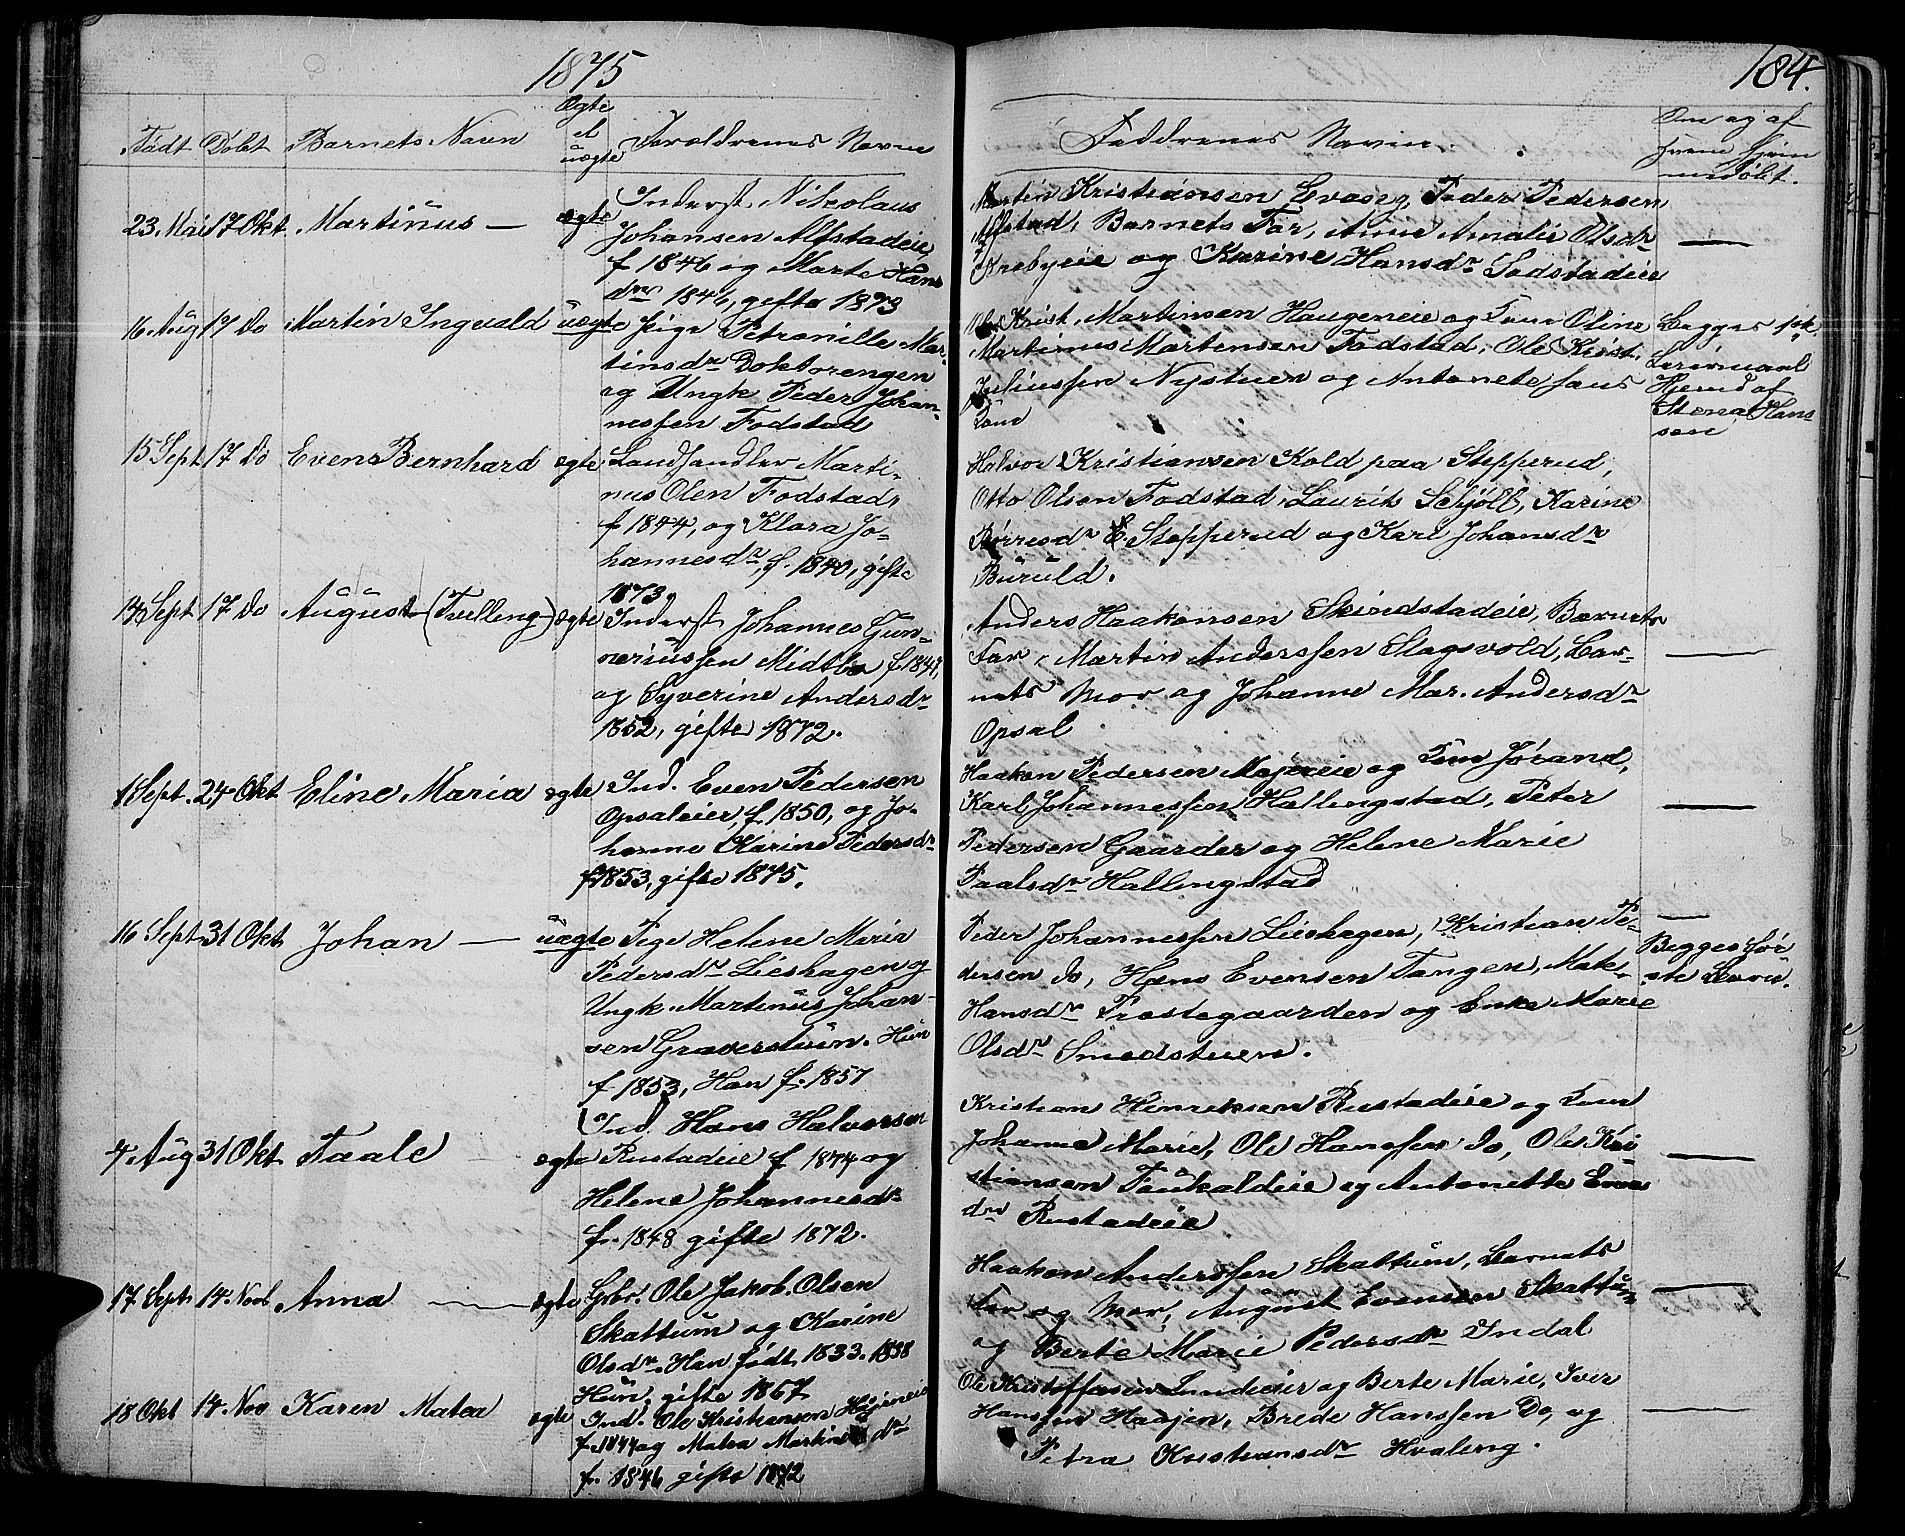 1875
184.
Født Døbt Barnets Navn Ægte el uægte Forældrenes Navne
Faddrenes Navne
Om og af hvem hjemmedøbt.
23. Mai 17 Okt. Martinus — ægte Inderst Nikolaus
Johansen Alfstadeie,
f 1846 og Marte Hans
dr 1846, gifte 1873
Martin Kristiansen Evase, Peder Pedersen
Alfstad, Barnets Far, Anne Amalie Olsdr
Krebyeie og Karine Hansdr Fodstadeie —
16 Aug 17 Do Martin Ingvald uægte Pige Petronille Mar-
tinsdr Doktorengen
og Ungk Peder Johan-
nessen Fodstad
Krist. Martinsen Haugeneie og Kone Oline
Martinus Martensen Fodstad, Ole Krist.
Juliussen Nystuen og Antonete hans
Kone
Begges 1ste
Leiermaal
Hjemd af
Stena Hans-
sen
15 Sept 17 Do Even Bernhard ægte Landhandler Marti-
nus Olsen Fodstad,
f 1844, og Klara Jo-
hannesdr, f. 1840, gifte
1873.
Halvor Kristiansen Kold paa Stepperud,
Otto Olsen Fodstad, Laurits Schjøll, Karine
Børresdr Stepperud og Karl Johansdr
Buruld.
14 Sept 17 Do August (Tvelling) ægte Inderst Johannes Gun-
neriussen Midtbø f. 1848,
og Syverine Andersdr
1852, gifte 1872.
Anders Haakensen Skirdstadeie, Barnets
Far, Martin Anderssen Slagsvold, Bar-
nets Mor og Johanne Mar. Andersdr
Opsal
—
1 Sept. 24 Okt Eline Maria ægte Ind. Even Pedersen
Opsaleier, f. 1850, og Jo-
hanne Karine Pedersdr
f 1853, gifte 1875.
Haaken Pedersen Majereie og Kone Jørand,
Karl Johannessen Hallingstad, Peter
Pedersen Gaarder og Helene Marie
Paalsdr Hallingstad
—
16 Sept 31 Okt Johan — uægte Pige Helene Maria
Pedersdr Lieshagen og
Ungk. Martinus Johan-
sen Graverstuen. Hun
f 1853, Han f. 1857
Peder Johannessen Lieshagen, Kristian Pe-
dersen do, Hans Evensen Tangen, Mate
Hansdr Præstegaarden og Enke Marie
Olsdr Smedstuen.
—
Begges før-
ste Leier.
4 Aug 31 Okt Paale ægte Ind. Hans Halvorsen
Rustadeie f 1844 og
Helene Johannesdr
f. 1848 gifte 1872.
Kristian Henriksen Rustadeie og Kone
Johanne Marie, Ole Hanssen do, Ole Kri-
stiansen Paukaldeie og Antonette Evens
dr Rustadeie
—
17 Sept 14. Novb Anna — ægte Gbr. Ole Jakob Olsen
Skattum og Karine
Olsdr. Han født 1833. 1838
Hun, gifte 1867
Haaken Anderssen Skattum, Barnets
Far og Mor, August Evensen Skattum
og Berte Marie Pedersdr Indal
—
18 Okt 14. Nov Karen Matea ægte Ind. Ole Kristiansen Høgneie
f. 1844 og Matea Martinsdr
f. 1846 gifte 1872
Ole Kristoffersen Lundeeier og Berte Marie, Iver
Hanssen Haajen, Brede Hanssen Do, og
Petra Kristiansdr Hvaleng.
—